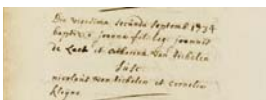 Die vicesima secunda septemb 1734
baptizata Joanna fil: leg: joannis
de Lack et Catharina Van Vechelen
Susc
nicolaus Van Vechelen et Cornelia
Kleyne